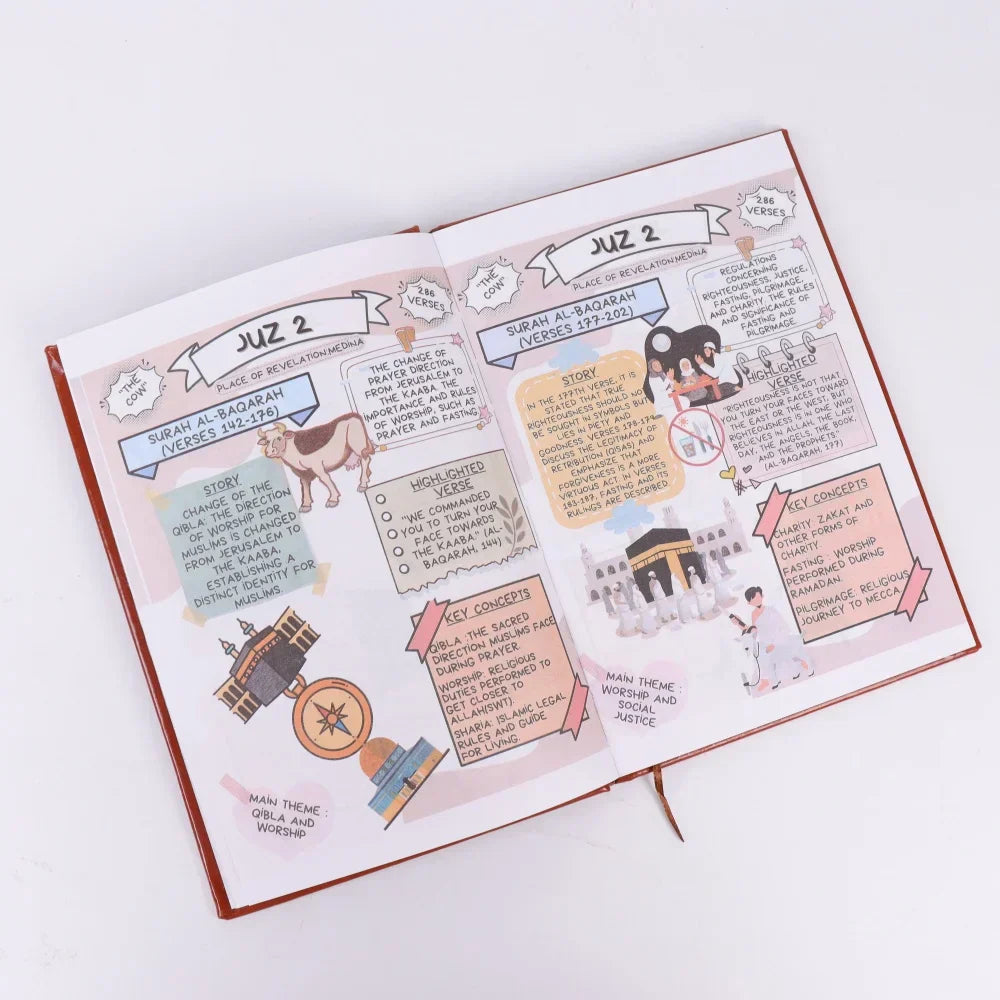 "THE
COW"
JUZ 2
286
VERSES
PLACE OF REVELATION:MEDINA
SURAH AL-BAQARAH
(VERSES 142-176)
THE CHANGE OF
PRAYER DIRECTION
FROM JERUSALEM TO
THE KAABA, THE
IMPORTANCE AND RULES
OF WORSHIP, SUCH AS
PRAYER AND FASTING
STORY
CHANGE OF THE
QIBLA: THE DIRECTION
OF WORSHIP FOR
MUSLIMS IS CHANGED
FROM JERUSALEM TO
THE KAABA,
ESTABLISHING A
DISTINCT IDENTITY FOR
MUSLIMS.
HIGHLIGHTED
VERSE
"WE COMMANDED
YOU TO TURN YOUR
FACE TOWARDS
THE KAABA." (AL-
BAQARAH, 144)
KEY CONCEPTS
QIBLA :THE SACRED
DIRECTION MUSLIMS FACE
DURING PRAYER.
WORSHIP: RELIGIOUS
DUTIES PERFORMED TO
GET CLOSER TO
ALLAH(SWT).
SHARIA: ISLAMIC LEGAL
RULES AND GUIDE
FOR LIVING.
MAIN THEME :
QIBLA AND
WORSHIP
"THE
COW"
JUZ 2
286
VERSES
PLACE OF REVELATION:MEDINA
SURAH AL-BAQARAH
(VERSES 177-202)
REGULATIONS
CONCERNING
RIGHTEOUSNESS, JUSTICE,
FASTING, PILGRIMAGE,
AND CHARITY. THE RULES
AND SIGNIFICANCE OF
FASTING AND
PILGRIMAGE.
STORY
IN THE 177TH VERSE, IT IS
STATED THAT TRUE
RIGHTEOUSNESS SHOULD NOT
BE SOUGHT IN SYMBOLS BUT
LIES IN PIETY AND
GOODNESS. VERSES 178-179
DISCUSS THE LEGITIMACY OF
RETRIBUTION (QISAS) AND
EMPHASIZE THAT
FORGIVENESS IS A MORE
VIRTUOUS ACT. IN VERSES
183-187, FASTING AND ITS
RULINGS ARE DESCRIBED.
HIGHLIGHTED
VERSE
"RIGHTEOUSNESS IS NOT THAT
YOU TURN YOUR FACES TOWARD
THE EAST OR THE WEST, BUT
RIGHTEOUSNESS IS IN ONE WHO
BELIEVES IN ALLAH, THE LAST
DAY, THE ANGELS, THE BOOK,
AND THE PROPHETS"
(AL-BAQARAH, 177)
KEY CONCEPTS
CHARITY: ZAKAT AND
OTHER FORMS OF
CHARITY.
FASTING : WORSHIP
PERFORMED DURING
RAMADAN.
PILGRIMAGE: RELIGIOUS
JOURNEY TO MECCA
MAIN THEME :
WORSHIP AND
SOCIAL
JUSTICE